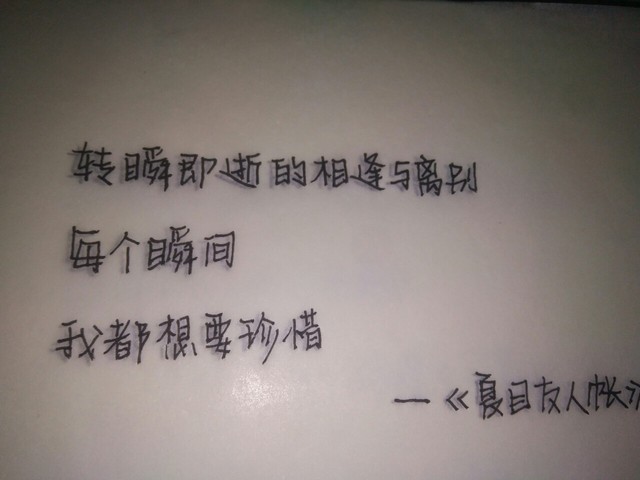 转瞬即逝的相逢与离别
每个瞬间
我都想要珍惜
—《夏目友人帐》